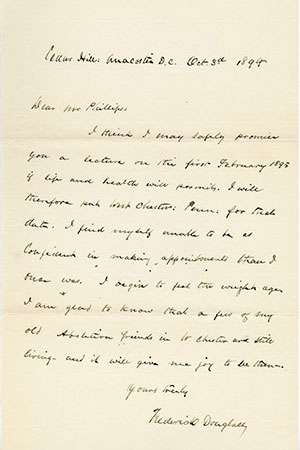 Cedar Hill: Anacostia D.C. Oct. 3d 1894
Dear Mr Phillips:
I think I may safely promise
you a lecture on the first February 1895
if life and health will permit. I will
therefore put West Chester: Penn: for that
date. I find myself unable to be as
Confident in making appointments than I
once was. I begin to feel the weight ages
I am glad to know that a few of my
old Abolition friends in W. Chester are still
living and it will give me joy to be them.
Yours truly
Frederick Douglass